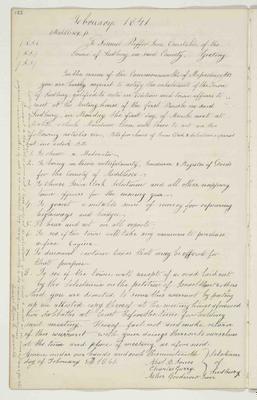 February 1841
Middlesex, ss
To Samuel Puffer one Constables of the
Town of Sudbury in said County. Greeting
In the name of the Commonwealth of Massachusetts
you are hereby required to notify the inhabitants of the Town
of Sudbury qualified to vote in Elections and town affairs to
meet at the meeting house of the first Parish in said
Sudbury, on Monday the first day of March next at
then and there to act on the
following articles viz.
1. To choose a Moderator
2. To bring in their votes for County Treasurer & Register of Deeds
for the County of Middlesex
3. To choose Town Clerk Selectmen and all other necessary
Town officers for the ensuing year
4. To grant a suitable sum of money for repairing
highways and bridges
5. To hear and act on all reports
6. To see if the town will take any measures to purchase
a fire Engine
7. To
that purpose
8. To see if the town will accept of a road laid out
by the Selectmen on the petition of & others
And you are directed to serve this warrant by posting
up an attested copy thereof at the meeting house aforesaid
two Sabbaths at least before the time for holding
said meeting. Hereof fail not and make return
of this warrant with your doings thereon to ourselves
at the time and place of meeting as aforesaid
Given under our hands and seal this
day of February AD 1841.
Selectmen
Sudbury